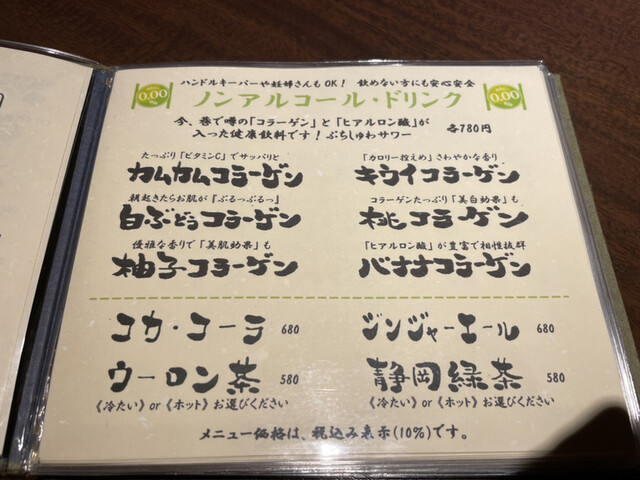 ハンドルキーパーや妊婦さんもOK! 飲めない方にも安心安全
0.00
ノンアルコール・ドリンク
0.00
今、巷で噂の「コラーゲン」と「ヒアルロン酸」が
入った健康飲料です!ぷちしゅわサワー
各780円
たっぷり「ビタミンC」でサッパリと
カムカムコラーゲン
「カロリー控えめ」さわやかな香り
キウイコラーゲン
朝起きたらお肌が「ぷるっぷるっ」
白ぶどうコラーゲン
コラーゲンたっぷり「美白効果」も
桃コラーゲン
優雅な香りで「美肌効果」も
柚子コラーゲン
「ヒアルロン酸」が豊富で相性抜群
バナナコラーゲン
コカ・コーラ 680
ジンジャーエール 680
ウーロン茶 580
《冷たい》or《ホット》お選びください
静岡緑茶 580
《冷たい》or《ホット》お選びください
メニュー価格は、税込み表示(10%)です。